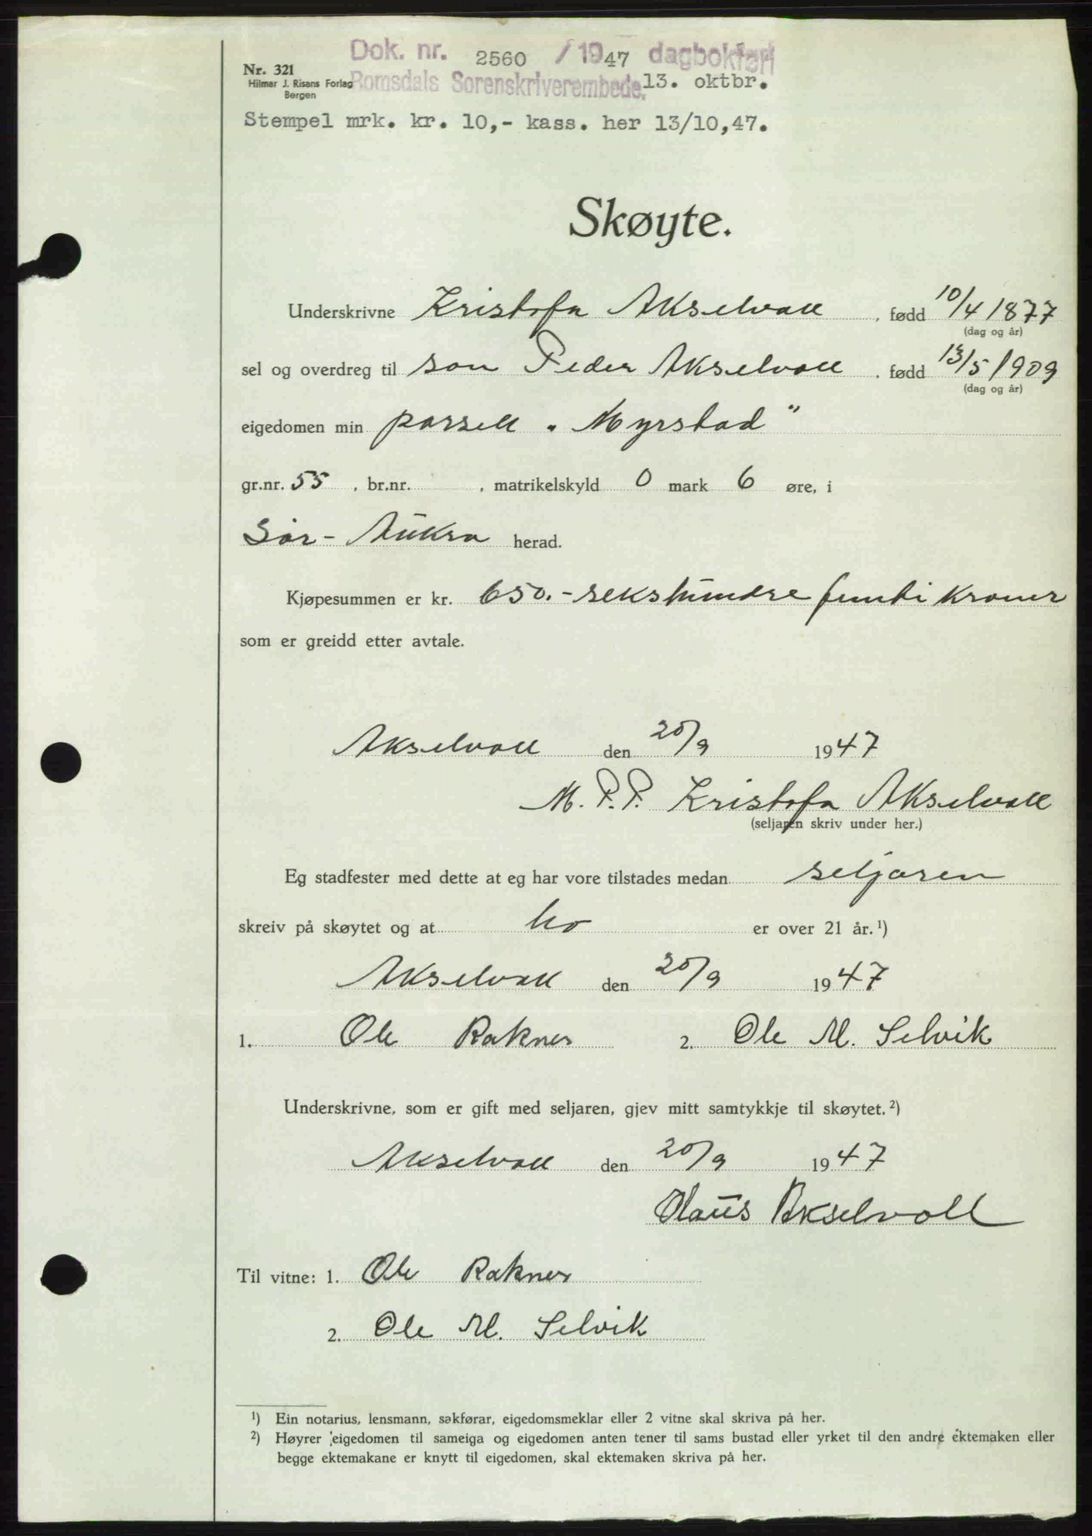 Dok. nr. 2560 / 1947 dagbokført
Nr. 321
Hilmar J. Risans Forlag
Bergen
Romsdals Sorenskriverembede. 13. oktbr.
Stempel mrk. kr. 10,- kass. her 13/10,47.
Skøyte.
Underskrivne Kristofa Akselvoll , fødd 10/4 1877
(dag og år)
sel og overdreg til son Peder Akselvoll , fødd 13/5 1909
(dag og år)
eigedomen min parsell „Myrstad"
gr.nr. 55 , br.nr. , matrikelskyld 0 mark 6 øre, i
Sør-Aukra herad.
Kjøpesummen er kr. 650.- sekshundre femti kroner
som er greidd etter avtale.
Akselvoll den 20/9 1947
M. P. P. Kristofa Akselvoll
(seljaren skriv under her.)
Eg stadfester med dette at eg har vore tilstades medan seljaren
skreiv på skøytet og at ho er over 21 år.¹)
Akselvoll den 20/9 1947
1. Ole Raknes 2. Ole M. Selvik
Underskrivne, som er gift med seljaren, gjev mitt samtykkje til skøytet.²)
Akselvoll den 20/9 1947
Olaus Akselvoll
Til vitne: 1. Ole Raknes
2. Ole M. Selvik
¹) Ein notarius, lensmann, sakførar, eigedomsmeklar eller 2 vitne skal skriva på her.
²) Høyrer eigedomen til sameiga og eigedomen anten tener til sams bustad eller yrket til den andre ektemaken eller
begge ektemakane er knytt til eigedomen, skal ektemaken skriva på her.